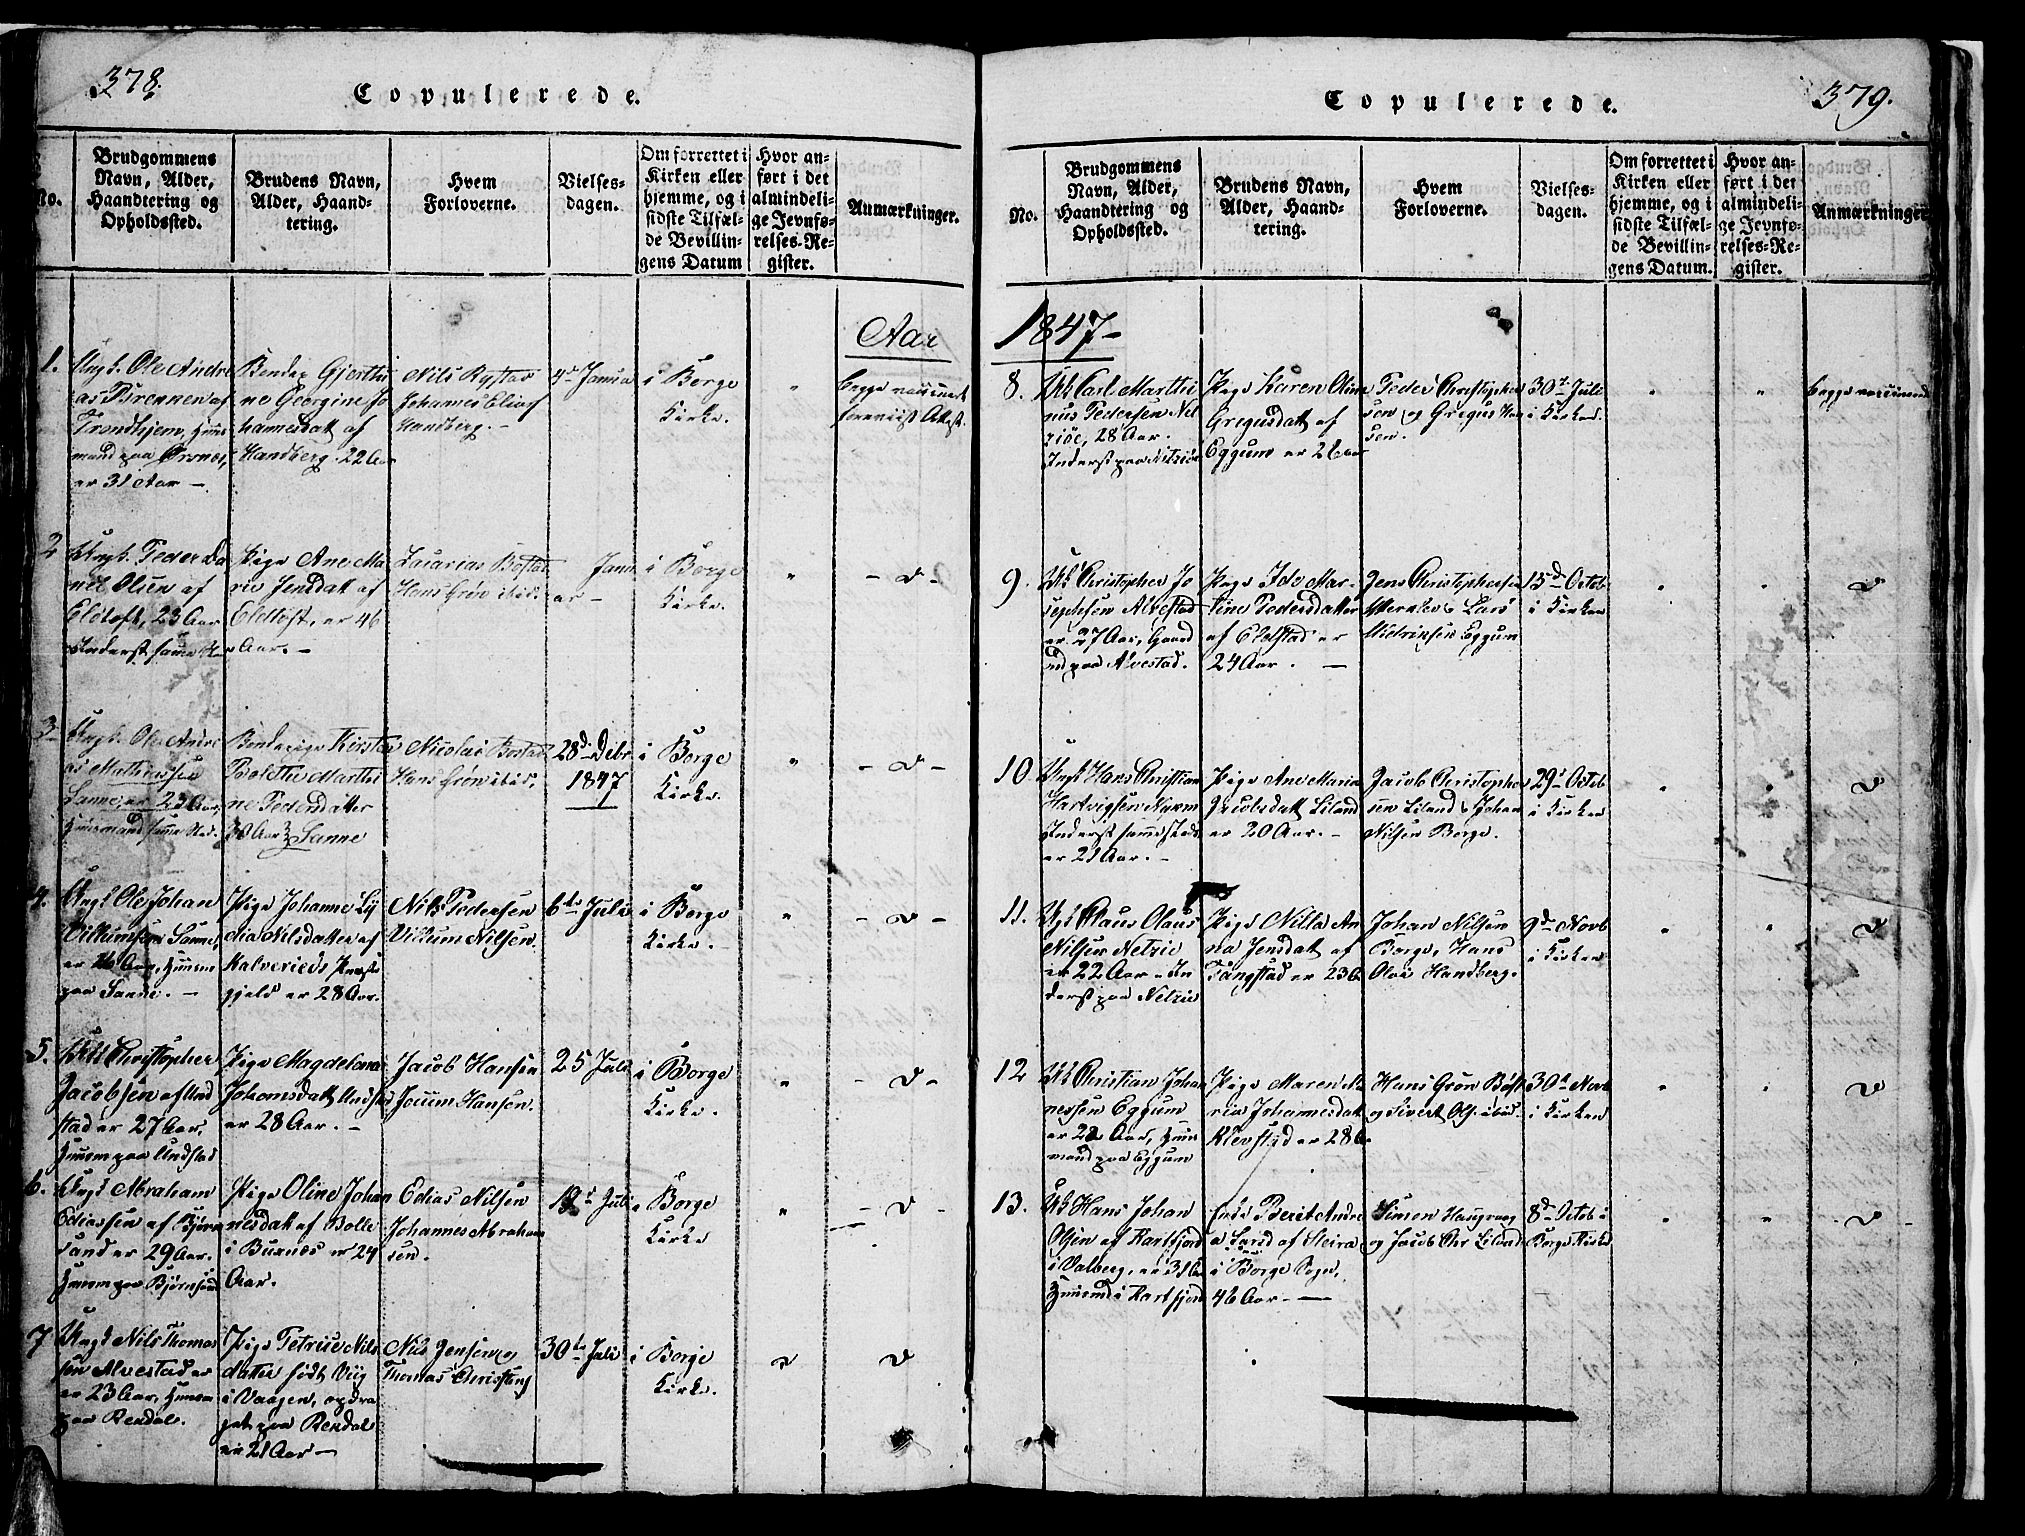 378.
Copulerede.
No.
Brudgommens
Navn, Alder,
Haandtering og
Opholdssted.
Brudens Navn,
Alder, Haand-
tering.
Hvem
Forloverne.
Vielses-
dagen.
Om forrettet i
Kirken eller
hjemme, og i
sidste Tilfæl-
de Bevillin-
gens Datum
Hvor an-
ført i det
almindeli-
ge Jevnfø-
relses-Re-
gister.
Anmærkninger.
Aar
1.
Ungk. Ole Andre
as Brennen af
Trondhjem,
mand paa Ørsnes,
er 31 Aar –
Gjerthi
ne Georgine Jo
hannesdatt af
Handberg. 22 Aar
Nils Rystad
Johannes Elias
Handberg. –
4de Janua
i Borge
Kirke.
"
begge vaccineret
2
Ungk. Peder Da
niel Olsen af
Eltoft, 23 Aar
Inderst samme St
Pige Ane Ma
rie Jensdatt af
Eldtoft, er 46
Aar. –
Zacarias Bøstad
Hans Grøn ibid.
Janu
ar –
i Borge
Kirke.
"
– v –
3
Ungk. Ole Andre
as Mathiassen
Sanne, er 23 Aar,
Huusmand samme Sted.
Kirstin
Marthi
ne Pedersdatter
30 Aar Sanne
Nicolai Bostad
Hans Grøn ibid.
28de Debr
1847
i Borge
Kirke.
"
– v –
4.
Ungk Ole Johan
Villumsen Sanne,
er 26 Aar, Huusm
paa Sande. –
Pige Johanne Ly
dia Nilsdatter af
Kalverieds Præste
gjeld er 28 Aar.
Nils Pedersen
Villum Nilsen.
6te Juli
i Borge
Kirke. –
"
– v –
5.
Christopher
Jacobsen af Und
stad er 27 Aar,
Huusm paa Undstad
Pige Magdelena
Johansdatt Undstad
er 28 Aar. –
Jacob Hansen
Jocum Hansen.
25 Juli
i Borge
Kirke.
"
– v –
6.
Ungk Abraham
Ediassen af Bjørn
sand er 29 Aar.
Huusm paa Bjørnsand
Pige Oline Johan
nesdatt af Bolle
i Buxnæs er 24
Aar.
Edias Nilsen
Johannes Abraham
sen.
Juli
i Borge
Kirke
"
– v –
7
Ungk Nils Thomas
sen Alvestad er
er 23 Aar, Huusm
paa Rendal.
Pige Petrine Nils
datter født Viig
i Vaagen, opdra
get paa Rendal
er 21 Aar –
Nils Jensen og
Thomas Christens
30te Juli
i Borge
Kirke.
"
v
379.
Copulerede.
No.
Brudgommens
Navn, Alder,
Haandtering og
Opholdssted.
Brudens Navn,
Alder, Haand-
tering.
Hvem
Forloverne.
Vielses-
dagen.
Om forrettet i
Kirken eller
hjemme, og i
sidste Tilfæl-
de Bevillin-
gens Datum.
Hvor an-
ført i det
almindeli-
ge Jevnfø-
relses-Re-
gister.
Anmærkninger
1847 –
8.
Uk Carl Marthi
nus Pedersen Net
28 Aar.
Inderst paa
Pige Karen Oline
Gregusdatt af
Eggum er 26 Aar
Peder Christopher
sen og Gregus Han
sen.
30te Juli
i Kirken.
"
"
begge vaccinered
9.
Uk Christopher Jo
sephsen Alvestad
er 27 Aar, Gaard
md paa Alvestad.
Pige Ida Mar-
tine Pedersdatter
af Eldstad er
24 Aar. –
Jens Christophersen
Lars
Eggum
15de Octob
i Kirken
"
"
v
10.
Ungk Hans Christian
Hartvigsen
Inderst sammesteds
er 21 Aar. –
Pige Ane Maria
Jacobsdatt Liland
er 20 Aar. –
Jacob Christopher
sen Liland & Johan
Nilsen Borge.
29de Octob
i Kirken
"
"
v
11.
Uk Claus Olaus
Nilsen
er 22 Aar – In
derst paa
Pige Nilla An
na Jensdatt af
Tangstad er 23 Aa
Johan Nilsen
Borge, Hans
Olai Handberg.
9de Novb
i Kirken
"
"
v
12
Uk Christian Johan
nessen Eggum
er 22 Aar, Huus
mand paa Eggum
Pige Maren Ma
ria Johannesdatt
Klevstad er 28 Aa
Hans Grøn Bøst
og Sivert Ols. ibid.
30te Novb
i Kirken
"
"
v
13.
Uk Hans Johan
Olsen af Kartfjord
i Valberg, er 31 Aar
Huusmd i Kartfjord
Enke Berit Andre
a Larsd af Steira
i Borge Sogn,
46 Aar. –
Simon Haugvaag
og Jacob Chr Liland
8de Octob i
Borge Kirke
"
"
v –